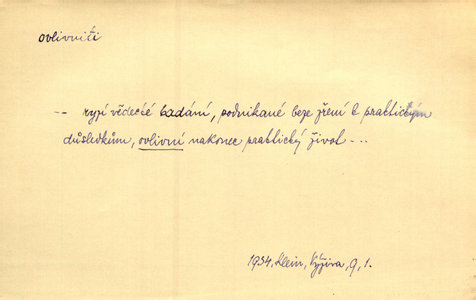 ovlivniti
-- ryzí vědecké badání, podnikané beze zření k praktickým
důsledkům, ovlivní nakonec praktický život ---
1934, Klein, Výživa, 9, 1.